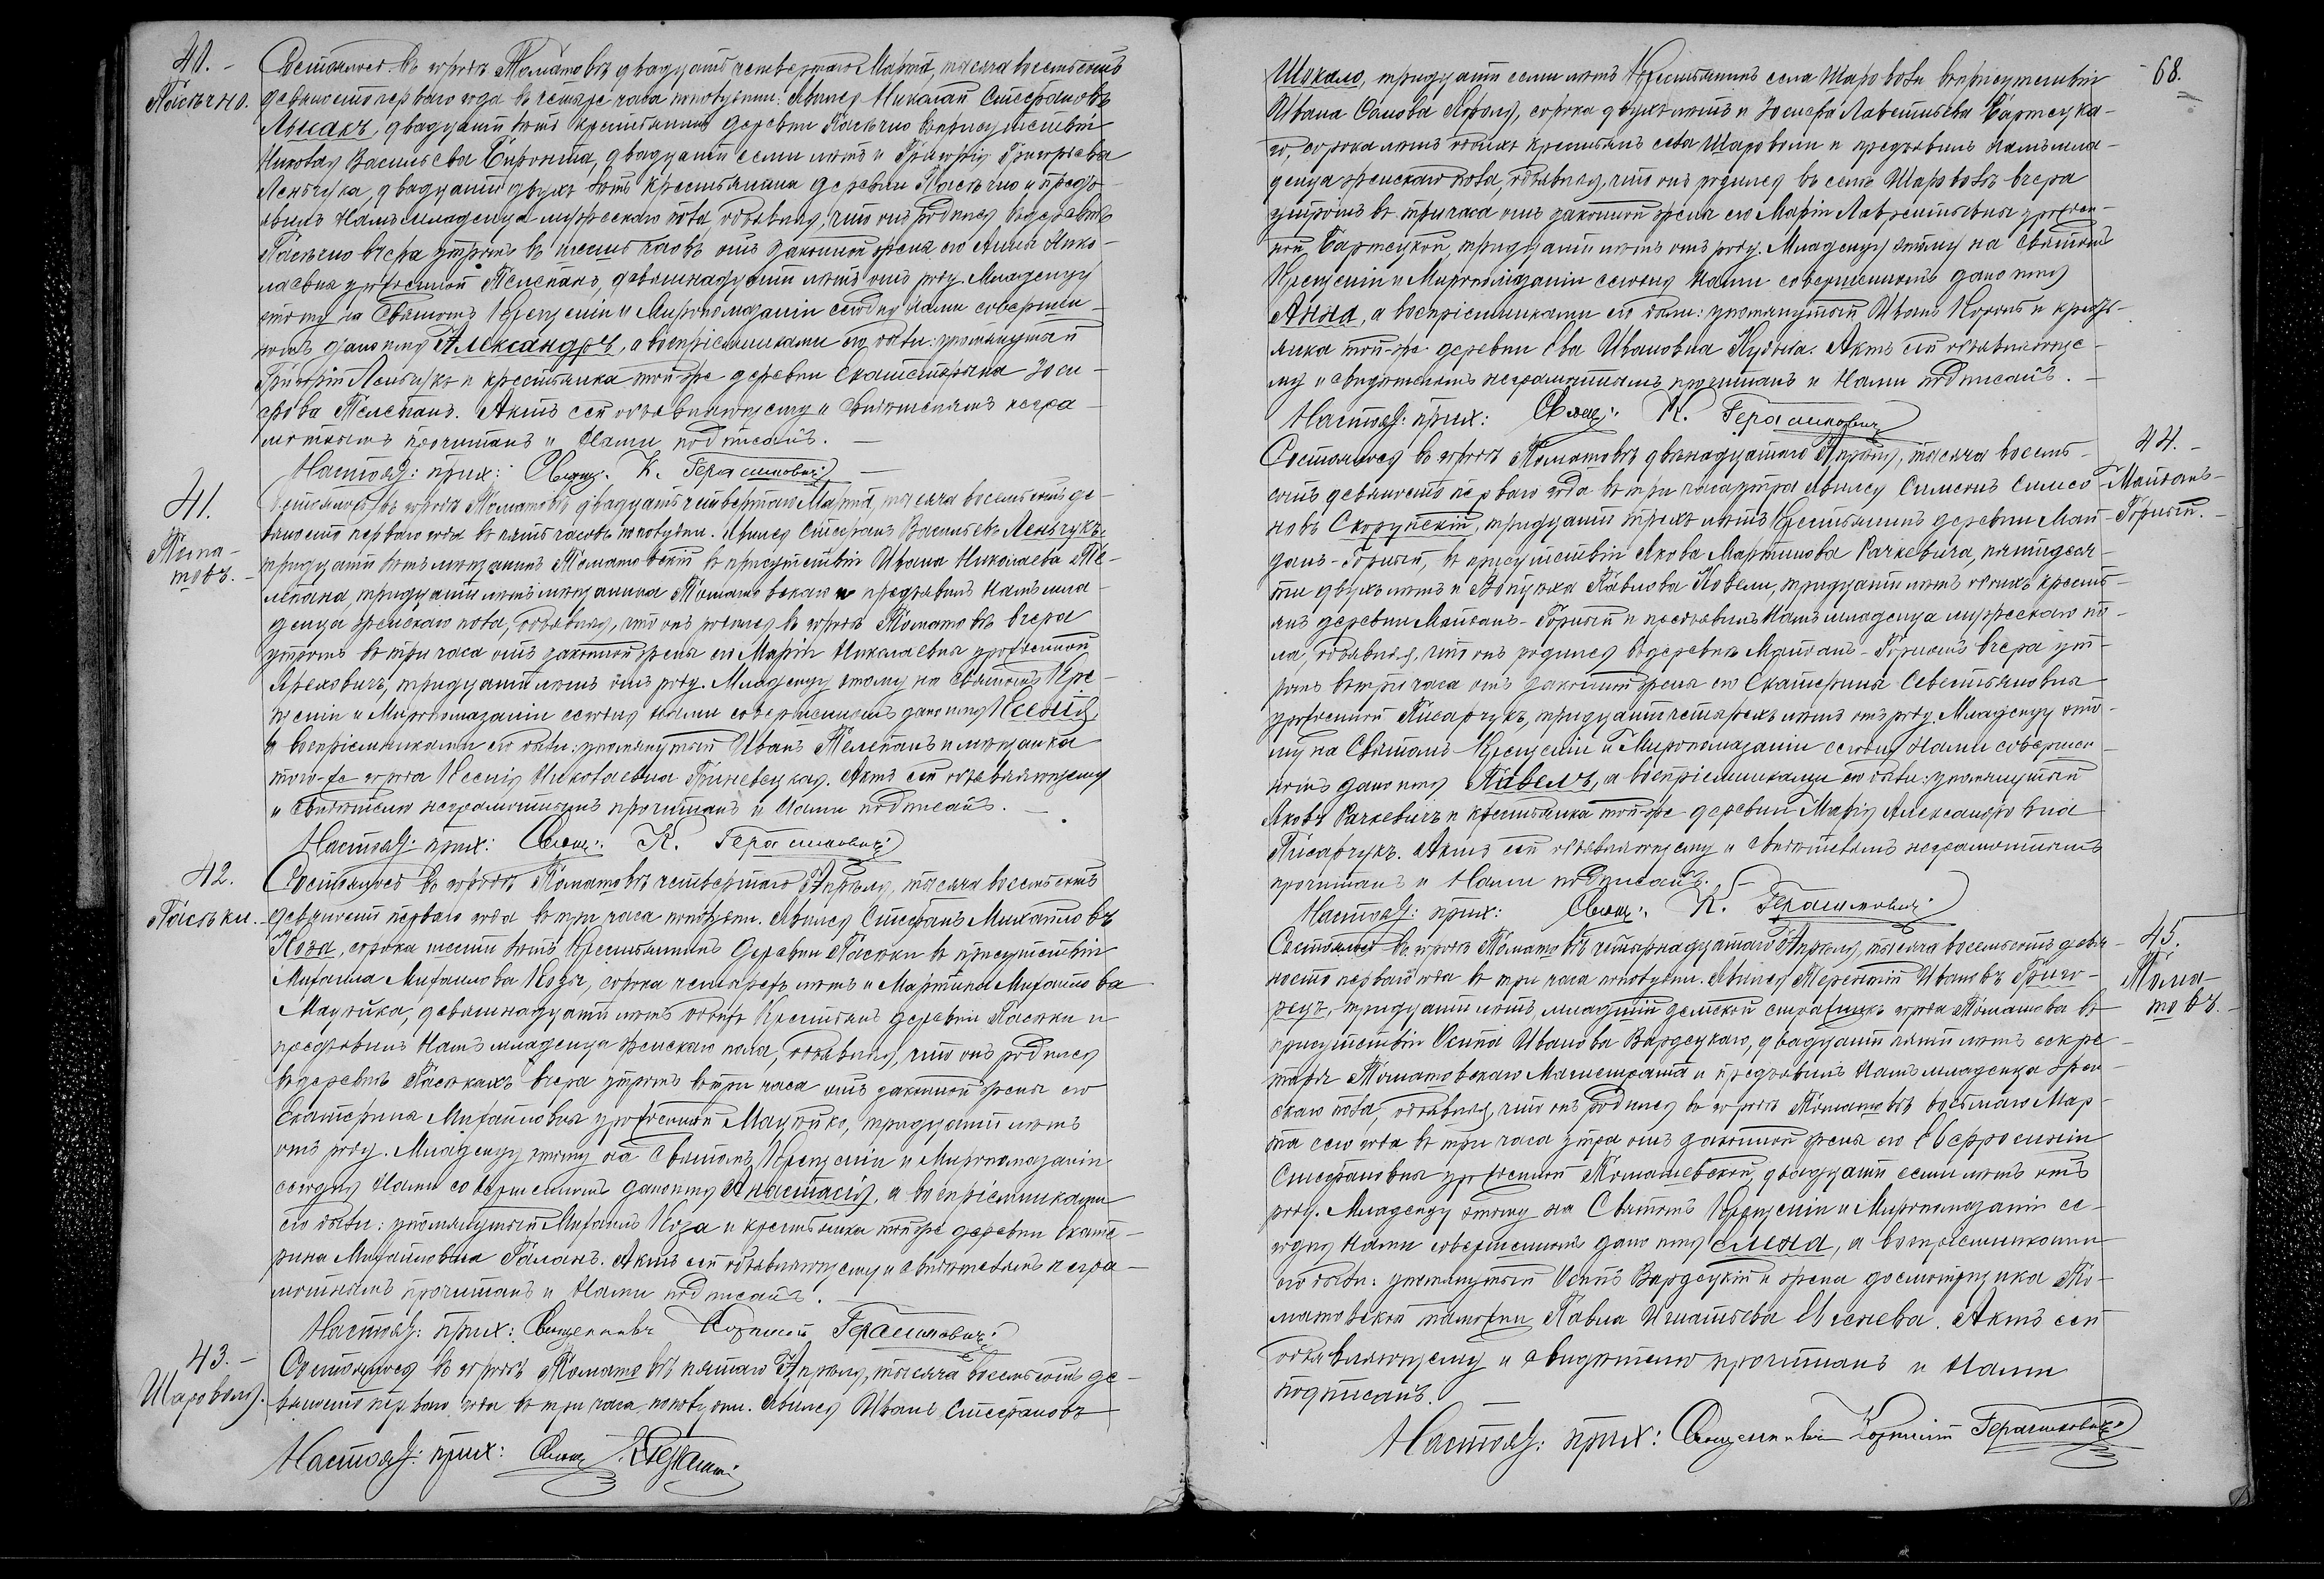 40. –
Пасѣчно.
Состоялось въ городѣ Томашовѣ двадцать четвертаго Марта, тысяча восемьсотъ
девяносто перваго года въ четыре часа пополудни. Явился Николай Стефановъ
двадцати лѣтъ крестьянинъ деревни Пасѣчно въ присутствіи
Николая Васильева двадцати семи лѣтъ и Григорія Григорьева
Ленчука, двадцати двухъ лѣтъ крестьянина деревни Пасѣчно и предъ-
явилъ Намъ младенца мужескаго пола, объявляя, что онъ родился въ деревнѣ
Пасѣчно вчера утромъ въ шесть часовъ отъ законной жены его Анны Нико-
лаевны урожденной Телепанъ, девятнадцати лѣтъ отъ роду. Младенцу
этому на Святомъ Крещеніи и Миропомазаніи сегодня Нами совершен-
номъ дано имя Александръ, а воспріемниками его были: упомянутый
Григорій Ленчукъ и крестьянка той-же деревни Екатерина Іоси-
фова Телепанъ. Актъ сей объявляющему и свидѣтелямъ негра-
мотнымъ прочитанъ и Нами подписанъ. –
Настоят: прих: Свящ. К. Герасимовичъ –
41.
Тома-
шовъ. –
Состоялось въ городѣ Томашовѣ двадцать четвертаго Марта, тысяча восемьсотъ де-
вяносто перваго года въ пять часовъ пополудни. Явился Стефанъ Васильевъ Ленчукъ,
тридцати лѣтъ мѣщанинъ Томашовскій въ присутствіи Ивана Николаева Те-
лепана, тридцати лѣтъ мѣщанина Томашовскаго и предъявилъ Намъ мла-
денца женскаго пола, объявляя, что онъ родился въ городѣ Томашовѣ вчера
утромъ въ три часа отъ законной жены его Маріи Николаевны урожденной
тридцати лѣтъ отъ роду. Младенцу этому на Святомъ Кре-
щеніи и Миропомазаніи сегодня нами совершенномъ дано имя Ксенія,
а воспріемниками его были: упомянутый Иванъ Телепанъ и мѣщанка
того-же города Ксенія Николаевна Гриневецкая. Актъ сей объявляющему
и свидѣтелю неграмотнымъ прочитанъ и Нами подписанъ. –
Настоят: прих: Свящ: К. Герасимовичъ
42.
Пасѣки.
Состоялось въ городѣ Томашовѣ четвертаго Апрѣля, тысяча восемьсотъ
девяносто перваго года въ три часа пополудни. Явился Стефанъ Михайловъ
Коза, сорока шести лѣтъ Крестьянинъ деревни Пасѣки въ присутствіи
Михаила Михайлова Козы, сорока четырехъ лѣтъ и Мартина Михайлова
Мацюйка, девятнадцати лѣтъ обоихъ Крестьянъ деревни Пасѣки и
предъявилъ Намъ младенца женскаго пола, объявляя, что онъ родился
въ деревнѣ Пасѣкахъ вчера утромъ въ три часа отъ законной жены его
Екатерины Михайловны урожденной Мацюйко, тридцати лѣтъ
отъ роду. Младенцу этому на Святомъ Крещеніи и Миропомазаніи
сегодня Нами совершенномъ дано имя Анастасія, а воспріемниками
его были: упомянутый Михаилъ Коза и крестьянка той же деревни Екате-
рина Михайловна Галанъ. Актъ сей объявляющему и свидѣтелямъ негра-
мотнымъ прочитанъ и Нами подписанъ. –
Настоят: прих: Священникъ Корнилій Герасимовичъ
43. –
Шароволя.
Состоялось въ городѣ Томашовѣ пятаго Апрѣля, тысяча восемьсотъ де-
вяносто перваго года въ три часа пополудни. Явился Иванъ Стефановъ
Настоят: прих: Свящ.
68.
Шокало, тридцати семи лѣтъ Крестьянинъ села Шароволи въ присутствіи
Ивана Короля, сорока двухъ лѣтъ и Іосифа Лаврентьева Бартецка-
го, сорока лѣтъ обоихъ крестьянъ села Шароволи и предъявилъ Намъ мла-
денца женскаго пола, объявляя, что онъ родился въ селѣ Шароволѣ вчера
утромъ въ три часа отъ законной жены его Маріи Лаврентьевны урожден-
ной Бартецкой, тридцати лѣтъ отъ роду. Младенцу этому на Святомъ
Крещеніи и Миропомазаніи сегодня Нами совершенномъ дано имя
Анна, а воспріемниками его были: упомянутый Иванъ Король и кресть-
янка той-же деревни Ева Ивановна Актъ сей объявляюще-
му и свидѣтелямъ неграмотнымъ прочитанъ и Нами подписанъ. –
Настоят: прих: Свящ: К. Герасимовичъ
44. –
Майданъ-
Горный. –
Состоялось въ городѣ Томашовѣ двѣнадцатаго Апрѣля, тысяча восемь-
сотъ девяносто перваго года въ три часа утра явился Симеонъ Симео-
новъ Скорупскій, тридцати трехъ лѣтъ Крестьянинъ деревни Май-
данъ-Горный, въ присутствіи Якова Мартинова Рачкевича, пятидеся-
ти двухъ лѣтъ и Павлова Ковели, тридцати лѣтъ обоихъ кресть-
янъ деревни Майданъ-Горный и предъявилъ Намъ младенца мужескаго по-
ла, объявляя, что онъ родился въ деревнѣ Майданъ-Горномъ вчера ут-
ромъ въ три часа отъ законной жены его Екатерины Севестьяновны
урожденной Писарчукъ, тридцати четырехъ лѣтъ отъ роду. Младенцу это-
му на Святомъ Крещеніи и Миропомазаніи сегодня Нами совершен-
номъ дано имя Павелъ, а воспріемниками его были: упомянутый
Яковъ Рачкевичъ и крестьянка той-же деревни Марія Александровна
Писарчукъ. Актъ сей объявляющему и свидѣтелямъ неграмотнымъ
прочитанъ и Нами подписанъ. –
Настоят: прих: Свящ: К. Герасимовичъ
45.
Тома-
шовъ. –
Состоялось въ городѣ Томашовѣ четырнадцатаго Апрѣля, тысяча восемьсотъ девя-
носто перваго года въ три часа пополудни. Явился Терентій Ивановъ Григо-
рецъ, тридцати лѣтъ, младшій земской стражникъ города Томашова въ
присутствіи Осипа Иванова Вардецкаго, двадцати пяти лѣтъ секре-
таря Томашовскаго Магистрата и предъявилъ Намъ младенца жен-
скаго пола, объявляя, что онъ родился въ городѣ Томашовѣ восьмаго Мар-
та сего года въ три часа утра отъ законной жены его Евфросиніи
Стефановны урожденной Томашевской, двадцати семи лѣтъ отъ
роду. Младенцу этому на Святомъ Крещеніи и Миропомазаніи се-
годня Нами совершенномъ дано имя Елена, а воспріемниками
его были: упомянутый Осипъ Вардецкій и жена досмотрщика То-
машовской таможни Павла Игнатьева Актъ сей
объявляющему и свидѣтелю прочитанъ и Нами
подписанъ. –
Настоят: прих: Священникъ Корнилій Герасимовичъ